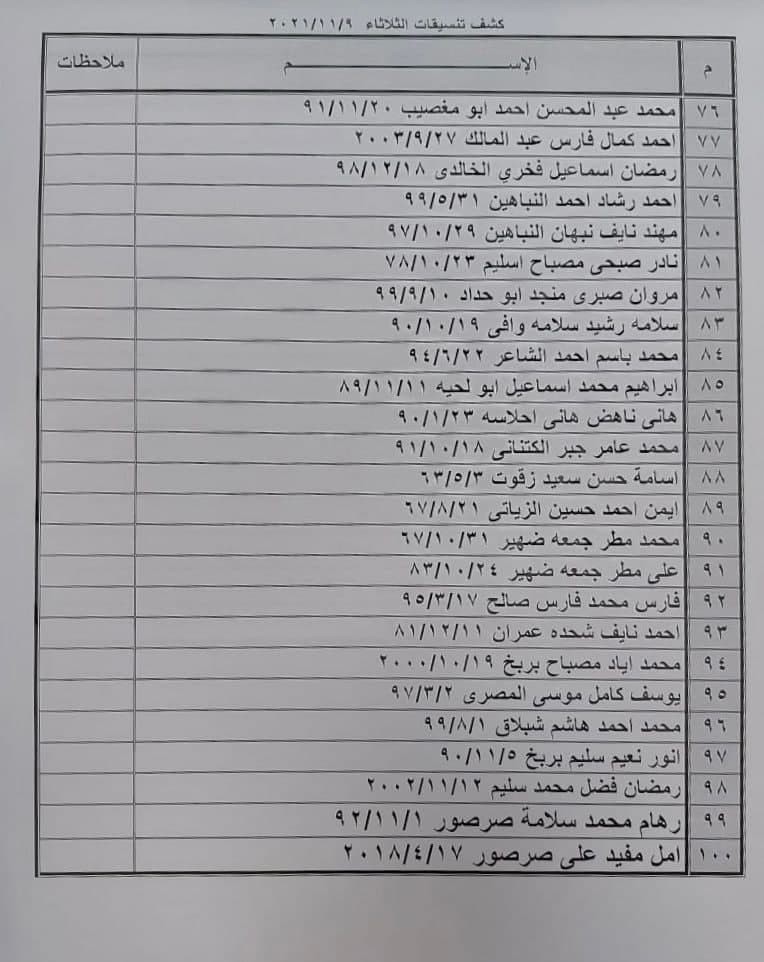 كشف تنسيقات الثلاثاء ٢٠٢١/١١/٩
م الإســـــــــم ملاحظات
٧٦ محمد عبد المحسن احمد ابو مغصيب ٩١/١١/٢٠
٧٧ احمد كمال فارس عبد المالك ٢٠٠٣/٩/٢٧
٧٨ رمضان اسماعيل فخري الخالدى ٩٨/١٢/١٨
٧٩ احمد رشاد احمد النباهين ٩٩/٥/٣١
٨٠ مهند نايف نبهان النباهين ٩٧/١٠/٢٩
٨١ نادر صبحى مصباح اسليم ٧٨/١٠/٢٣
٨٢ مروان صبرى منجد ابو حداد ٩٩/٩/١٠
٨٣ سلامه رشيد سلامه وافى ٩٠/١٠/١٩
٨٤ محمد باسم احمد الشاعر ٩٤/٦/٢٢
٨٥ ابراهيم محمد اسماعيل ابو لحيه ٨٩/١١/١١
٨٦ هانى ناهض هانى احلاسه ٩٠/١/٢٣
٨٧ محمد عامر جبر الكتنانى ٩١/١٠/١٨
٨٨ اسامة حسن سعيد زقوت ٦٣/٥/٣
٨٩ ايمن احمد حسين الزياتى ٦٧/٨/٢١
٩٠ محمد مطر جمعه ضهير ٦٧/١٠/٣١
٩١ على مطر جمعه ضهير ٨٣/١٠/٢٤
٩٢ فارس محمد فارس صالح ٩٥/٣/١٧
٩٣ احمد نايف شحده عمران ٨١/١٢/١١
٩٤ محمد اياد مصباح بربخ ٢٠٠٠/١٠/١٩
٩٥ يوسف كامل موسى المصرى ٩٧/٣/٢
٩٦ محمد احمد هاشم شبلاق ٩٩/٨/١
٩٧ انور نعيم سليم بربخ ٩٠/١١/٥
٩٨ رمضان فضل محمد سليم ٢٠٠٢/١١/١٢
٩٩ رهام محمد سلامة صرصور ٩٢/١١/١
١٠٠ امل مفيد على صرصور ٢٠١٨/٤/١٧